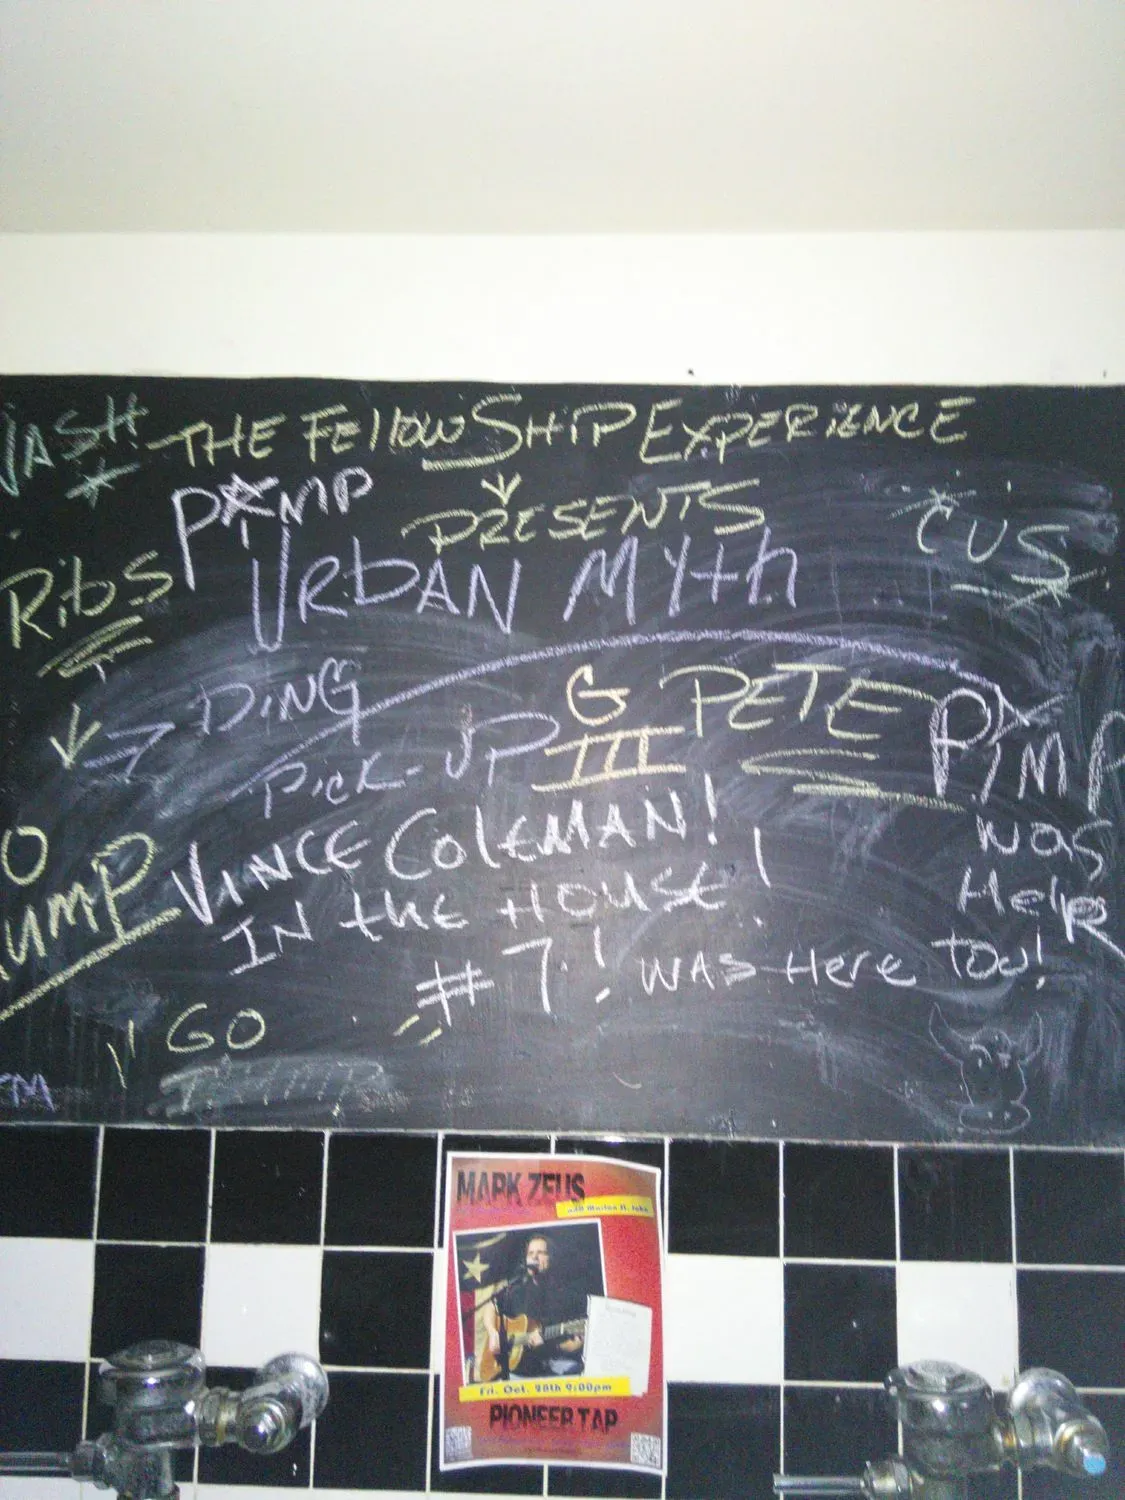 THE FEllOWSHiP EXPERIENCE
PIMP
PRESENTS
CUS
RibS
URbAN MYth
DiNG
G PETE
III
PiMP
PicK-UP
was
VINCE COlEMAN!
Here
IN thE HOUSE!
#7! WAS Here TOO!
GO
MARK ZEUS
Fri. Oct. 28th 9:00pm
PIONEER TAP